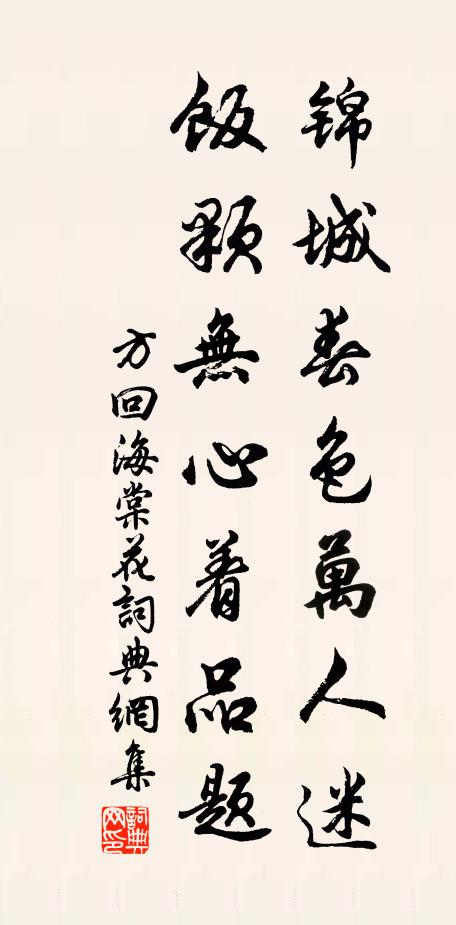 锦城春色萬人迷
飯顆無心着品題
方回海棠花詞典網集
詞典网印